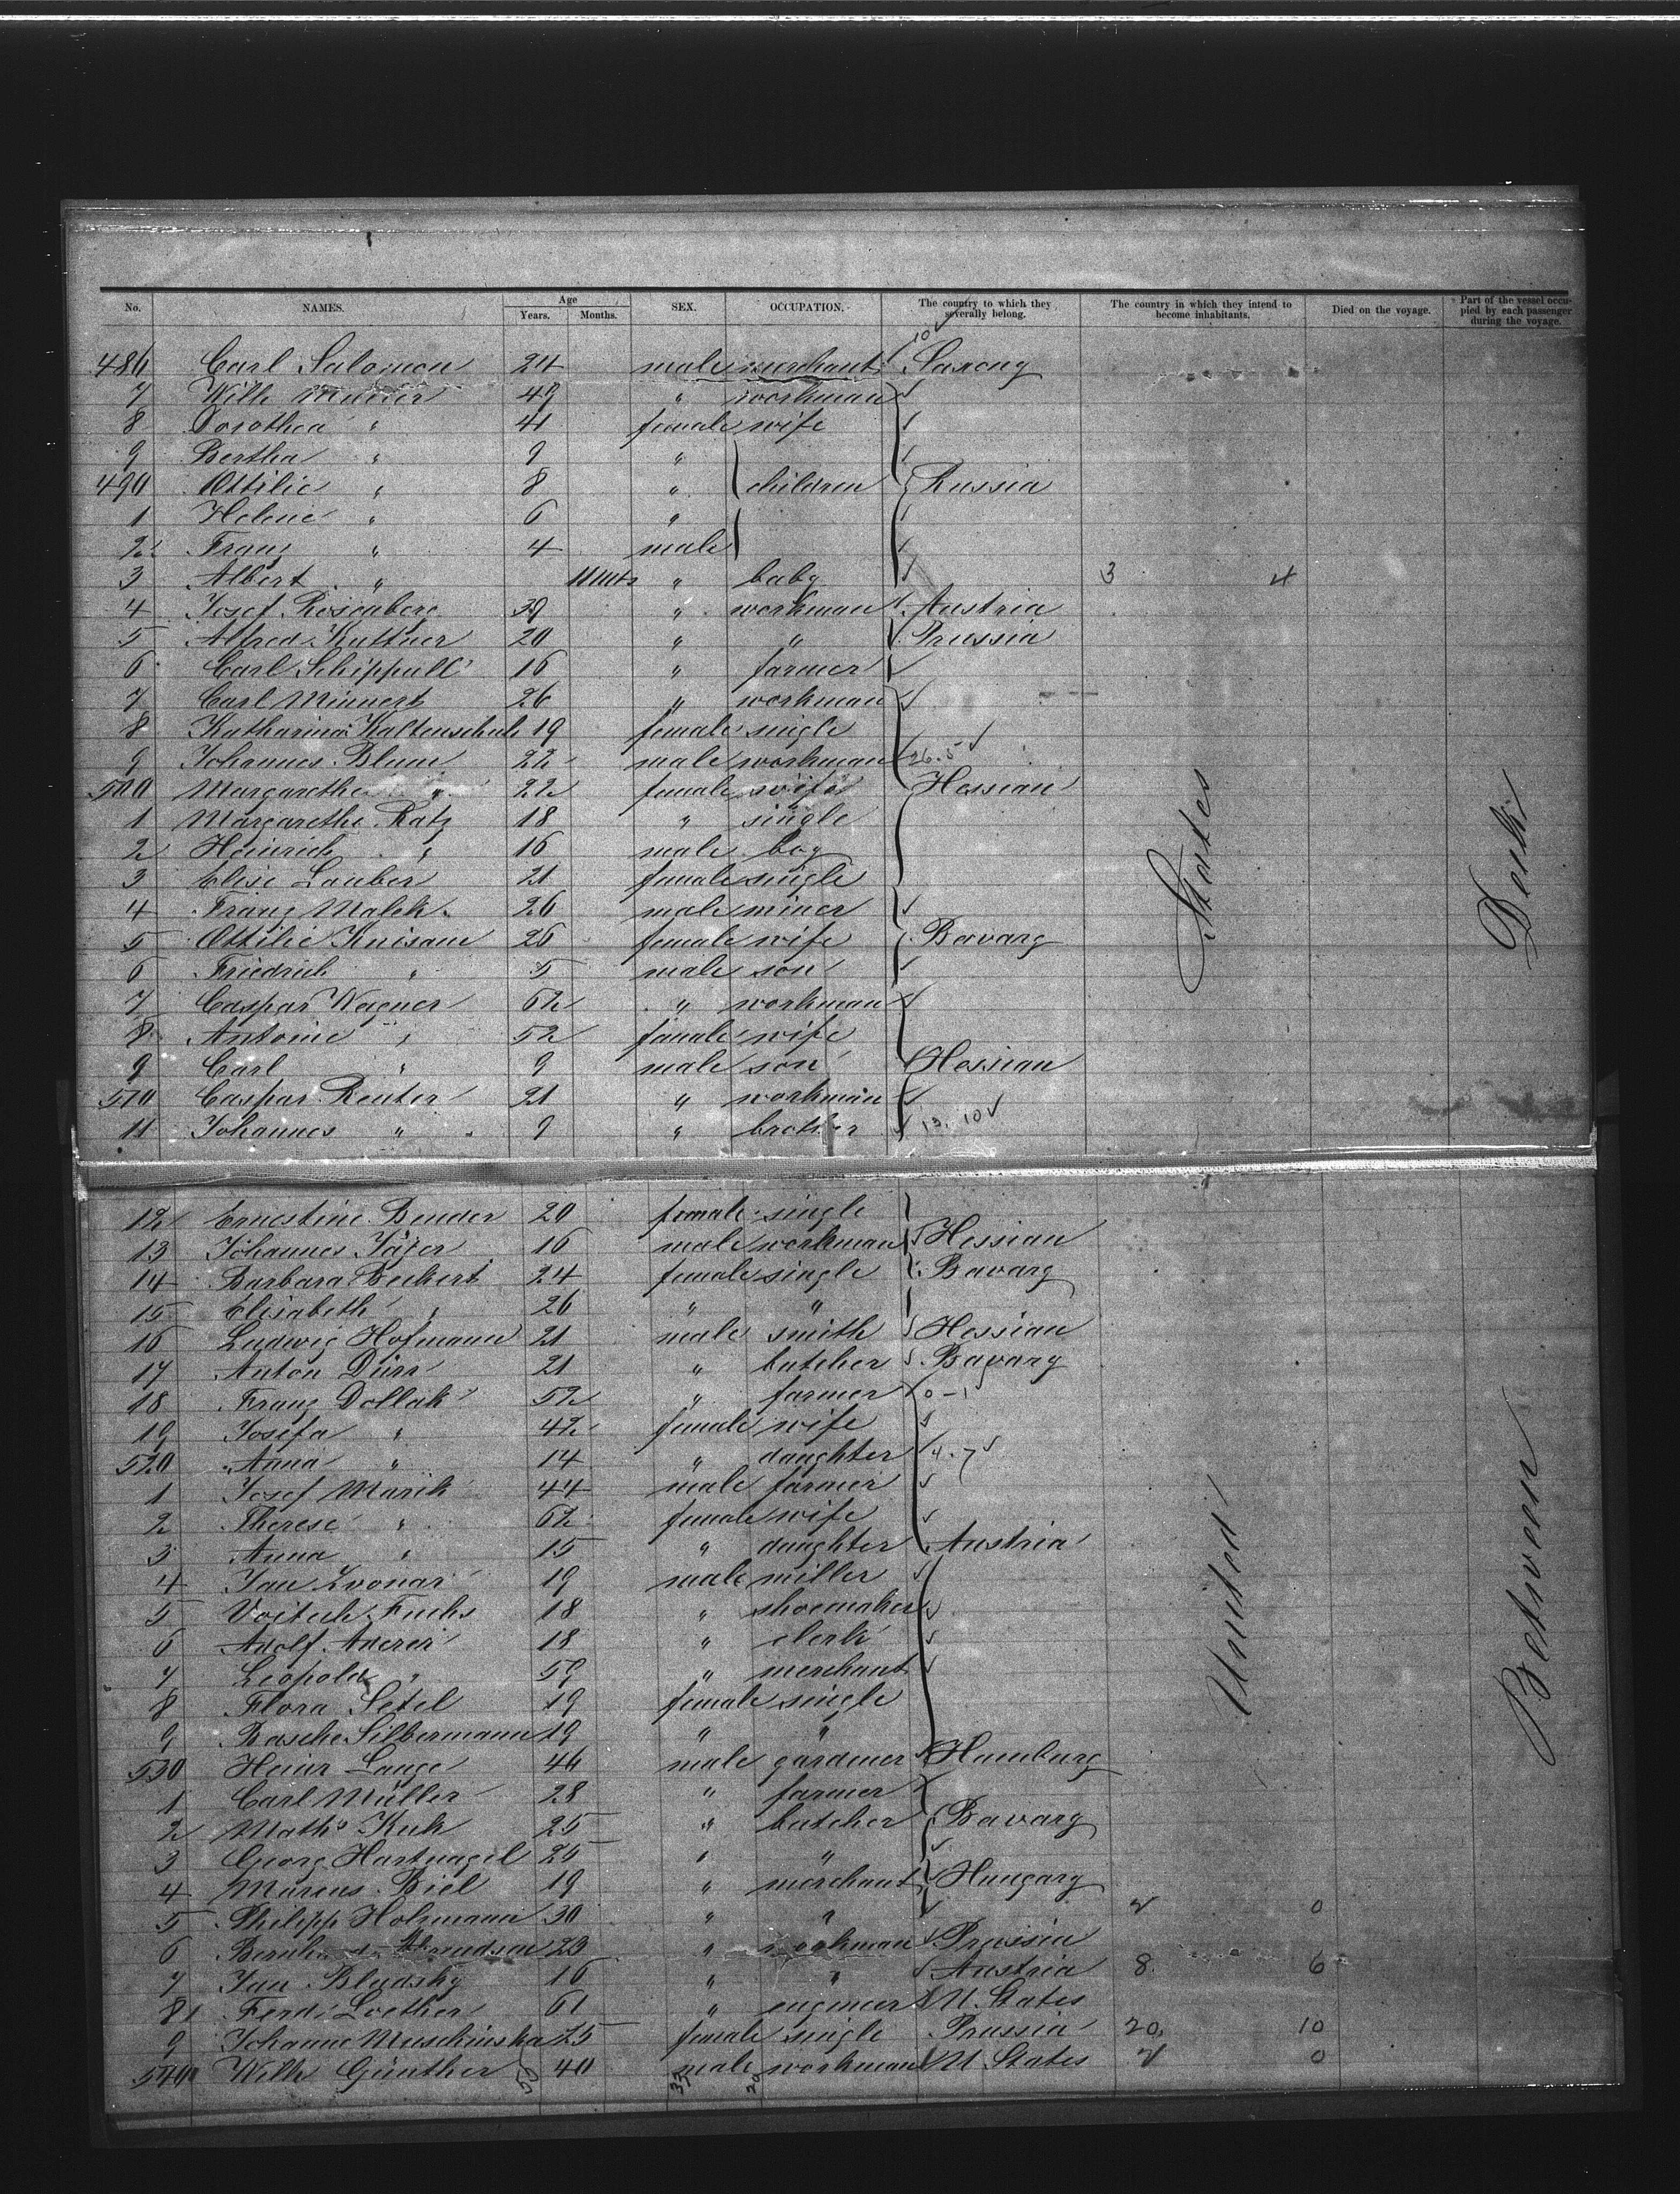 No. NAMES. Age Years. Months. SEX. OCCUPATION. The country to which they severally belong. The country in which they intend to become inhabitants. Died on the voyage. Part of the vessel occupied by each passenger during the voyage.
10
486 Carl Salomon 24 male merchant Saxony
7 Wilh 49 " workman
8 Dorothea " 41 female wife
9 Bertha " 9 "
490 Ottilie " 8 " children Russia
1 Helene " 6 "
2 Franz " 4 male
3 Albert " 11 Mnts " baby 3 4
4 Josef Rosenberg 39 " workman Austria
5 Alfred Kuttner 20 " " Prussia
6 Carl Schippull 16 " farmer
7 Carl Minnert 26 " workman
8 Katharina 19 female single
9 Johannes Blum 22 male workman 26.5
500 Margarethe " 22 female wife Hessian
1 Margarethe Katz 18 " single
2 Heinrich " 16 male boy
3 Elise Lauber 21 female single
4 Franz Malek 26 male miner
5 Ottilie 26 female wife Bavary
6 Friedrich " 5 male son
7 Caspar Wagner 62 " workman
8 Antoine " 52 female wife
9 Carl " 9 male son Hessian
510 Caspar Reuter 21 " workman
11 Johannes " 9 " brother 13. 10
12 Ernestine Bender 20 female single
13 Johannes Jäger 16 male workman Hessian
14 Barbara Beckert 24 female single Bavary
15 Elisabeth " 26 " "
16 Ludwig Hofmann 21 male smith Hessian
17 Anton Dürr 21 " butcher Bavary
18 Franz Dollak 52 " farmer 0-1
19 Josefa " 42 female wife
520 Anna " 14 " daughter 4.7
1 Josef Marik 44 male farmer
2 Therese " 62 female wife
3 Anna " 15 " daughter Austria
4 Jan Zvonar 19 male miller
5 Voitech Fuchs 18 " shoemaker
6 Adolf 18 " clerk
7 Leopold " 59 " merchant
8 Flora Setel 19 female single
9 Basche Silbermann 19 " "
530 Heinr Lange 44 male gardener Hamburg
1 Carl Müller 28 " farmer
2 Maths Kuh 25 " butcher Bavary
3 Georg Hartnagel 25 " "
4 Marcus Biel 19 " merchant Hungary
5 Philipp Holzmann 30 " " 0
6 23 " workman Prussia
7 Jan Bludsky 16 " " Austria 8 6
8 Ferd. Loether 61 " engineer U. States
9 Johanne Muschinska 25 female single Prussia 20 10
540 Wilh Günther 40 male workman U. States 0
United States
Between Deck